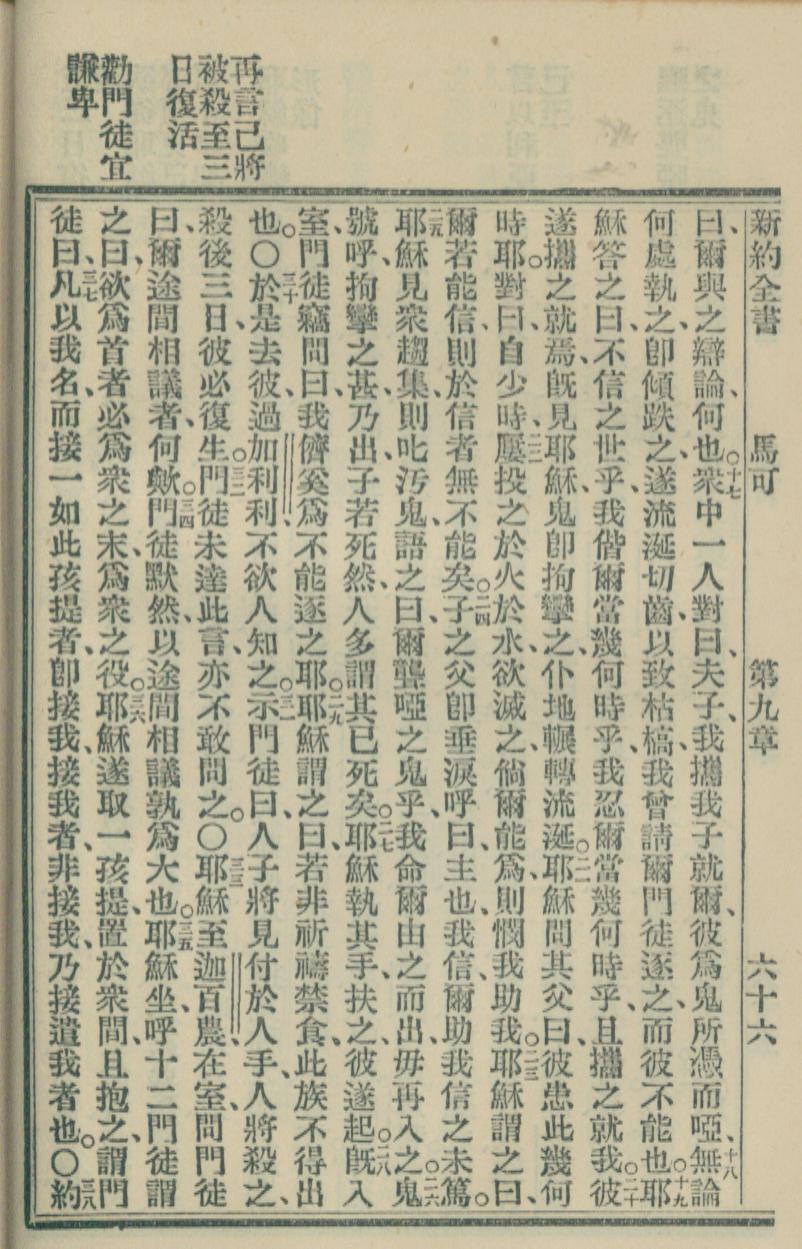 新約全書 馬可 第九章 六十六
曰、爾與之辯論何也。十七衆中一人對曰、夫子、我攜我子就爾、彼爲鬼所憑而啞、十八無論
何處執之、卽傾跌之、遂流涎切齒、以致枯槁、我曾請爾門徒逐之、而彼不能也。十九耶
穌答之曰、不信之世乎、我偕爾當幾何時乎、我忍爾當幾何時乎、且攜之就我。二十彼
遂攜之就焉、旣見耶穌、鬼卽拘攣之、仆地輾轉流涎。二一耶穌問其父曰、彼患此幾何
時耶。對曰、自少時、二二屢投之於火於水、欲滅之、倘爾能爲、則憫我助我。二三耶穌謂之曰、
爾若能信、則於信者無不能矣。二四子之父卽垂淚呼曰、主也、我信、爾助我信之未篤。
二五耶穌見衆趨集、則叱汚鬼、語之曰、爾聾啞之鬼乎、我命爾由之而出、毋再入之。二六鬼
號呼、拘攣之甚、乃出、子若死然、人多謂其已死矣。二七耶穌執其手、扶之、彼遂起。二八旣入
室、門徒竊問曰、我儕奚爲不能逐之耶。二九耶穌謂之曰、若非祈禱禁食、此族不得出
也。〇三十於是去彼、過加利利、不欲人知之。三一示門徒曰、人子將見付於人手、人將殺之、
殺後三日、彼必復生。三二門徒未達此言、亦不敢問之。〇三三耶穌至迦百農、在室、問門徒
曰、爾途間相議者何歟。三四門徒默然、以途間相議孰爲大也。三五耶穌坐、呼十二門徒謂
之曰、欲爲首者、必爲衆之末、爲衆之役。三六耶穌遂取一孩提、置於衆間、且抱之、謂門
徒曰、三七凡以我名、而接一如此孩提者、卽接我、接我者、非接我、乃接遣我者也。〇三八約
再言己將
被殺至三
日復活
勸門徒宜
謙卑